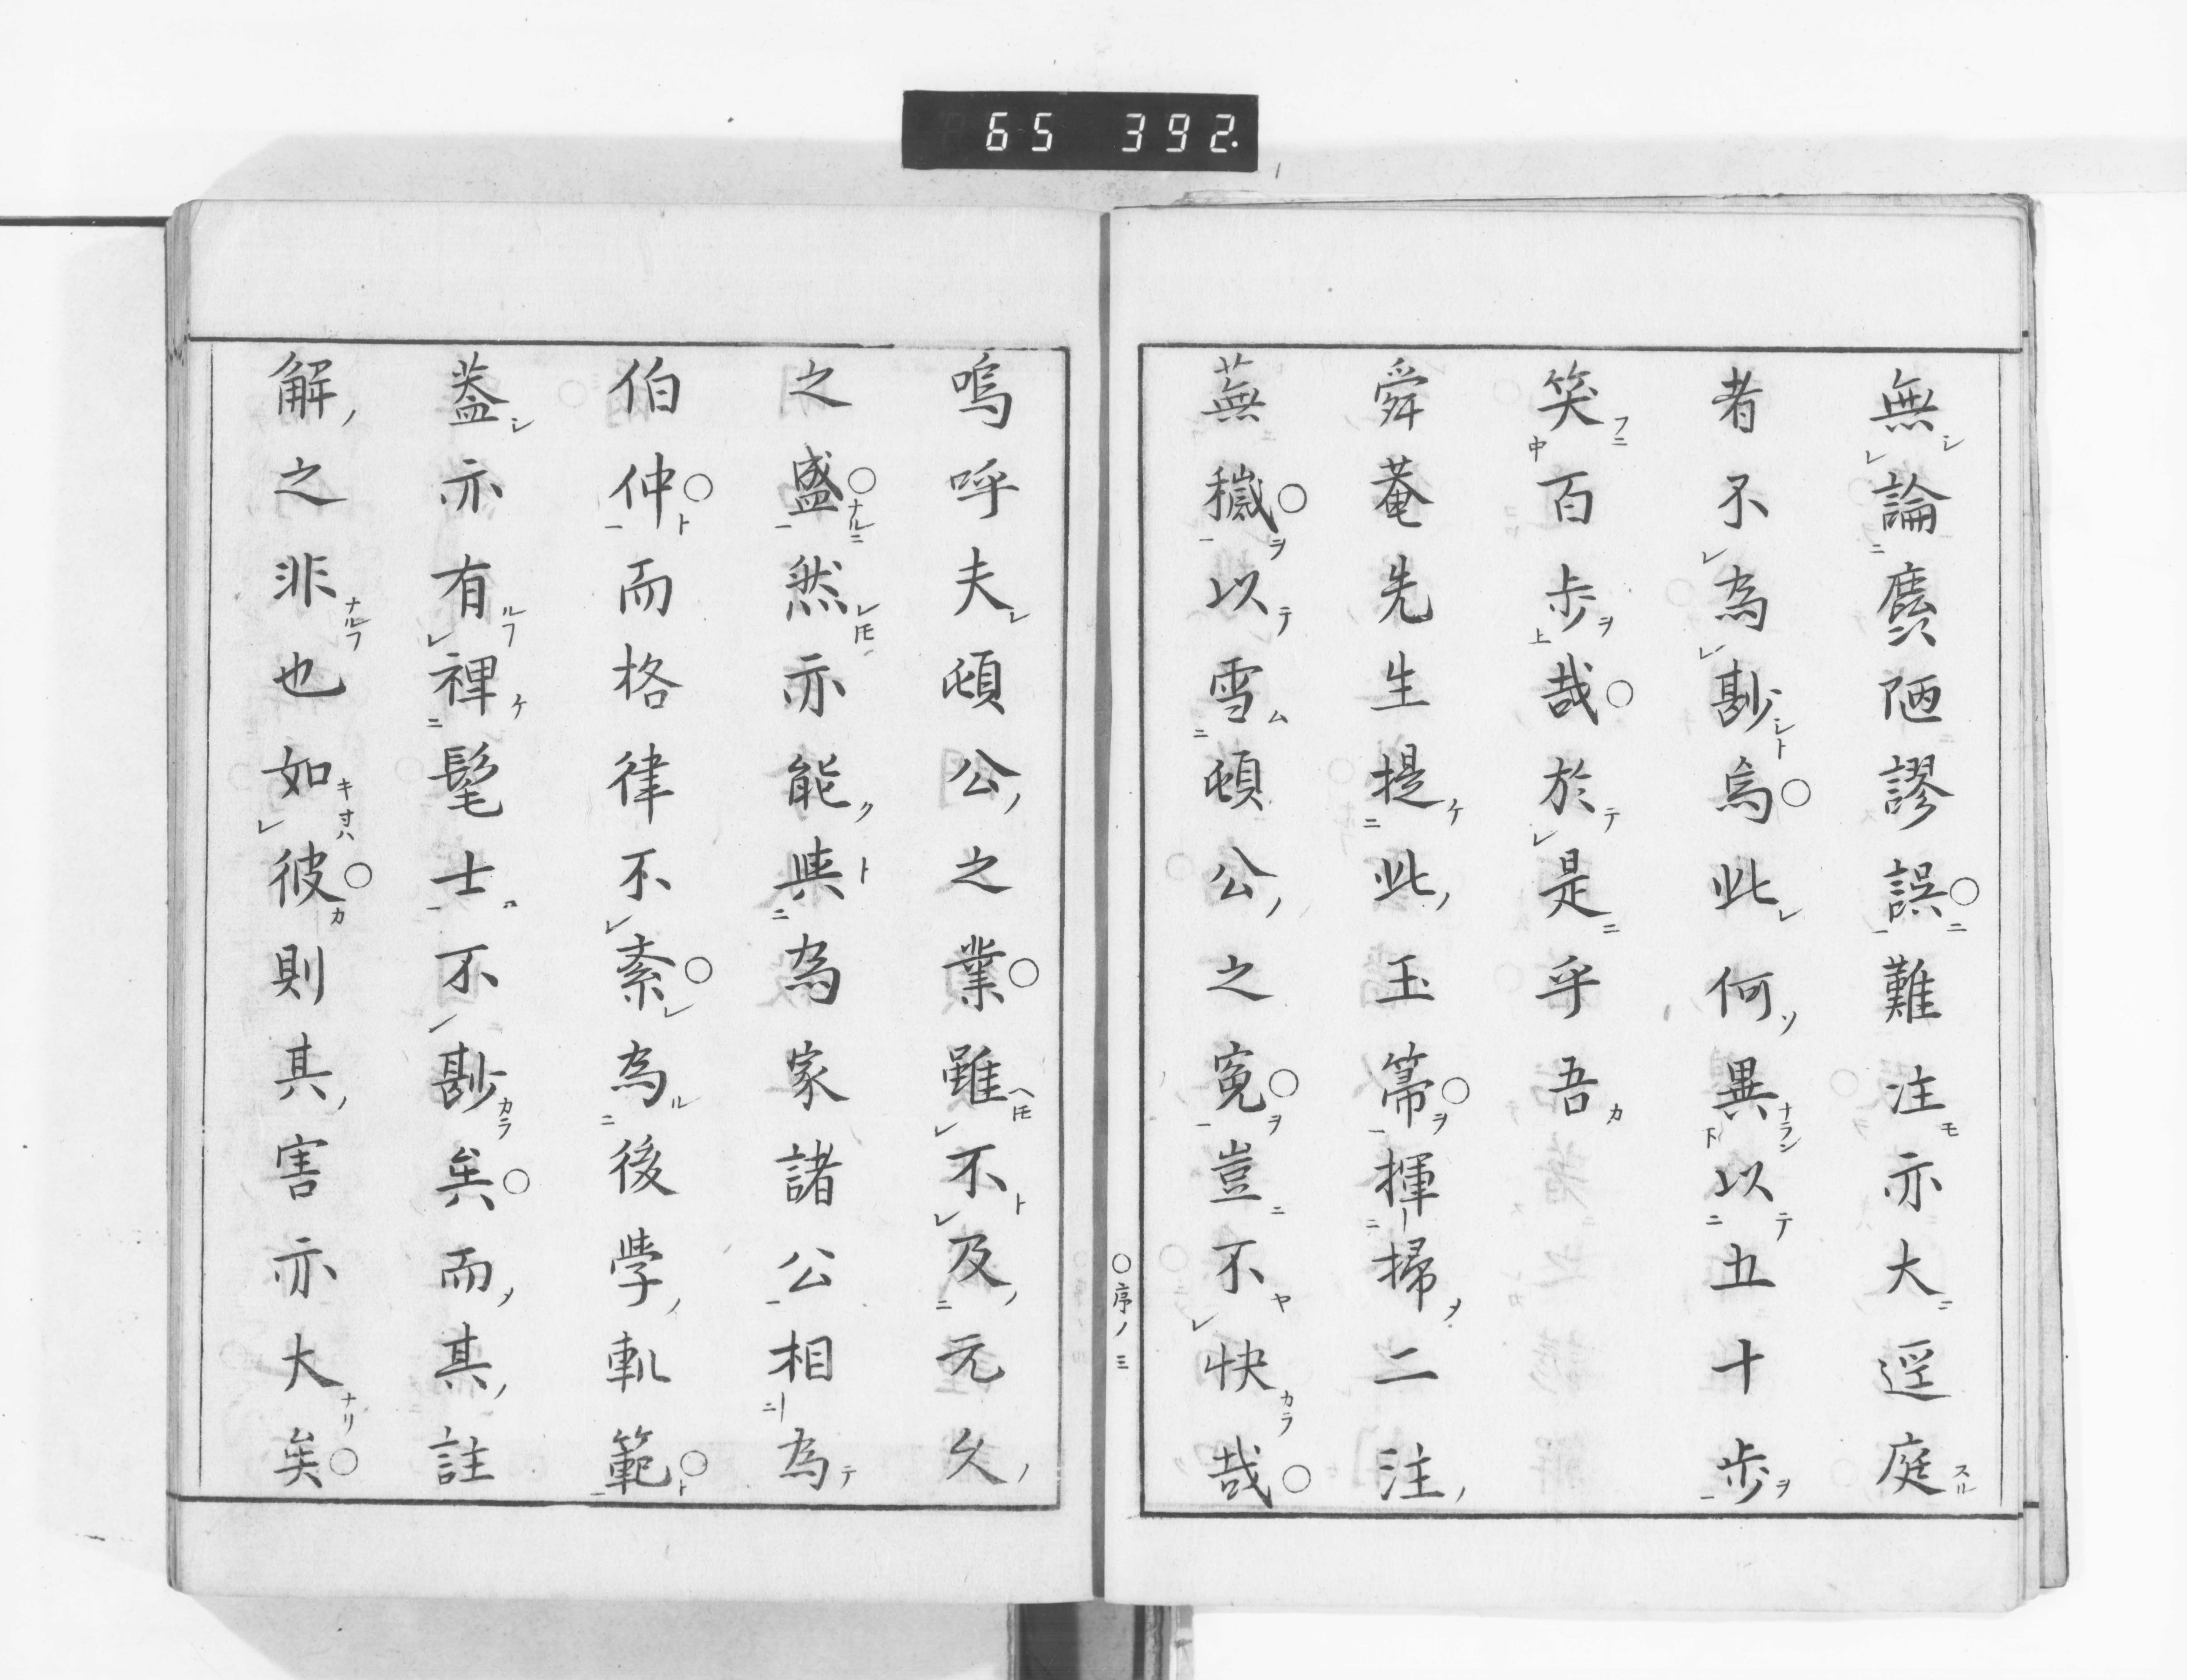 65 392.
無論麤陋謬誤難注亦大逕庭
者不為尠烏此何異以五十步
笑百步哉於是乎吾
舜菴先生提此玉箒揮掃二注
蕪穢以雪頓公之冤豈不快哉
○序ノ三
嗚呼夫頓公之業雖不及元久
之盛然亦能與為家諸公相為
伯仲而格律不紊為後學軌範
蓋亦有裨髦士不尠矣而其註
解之非也如彼則其害亦大矣